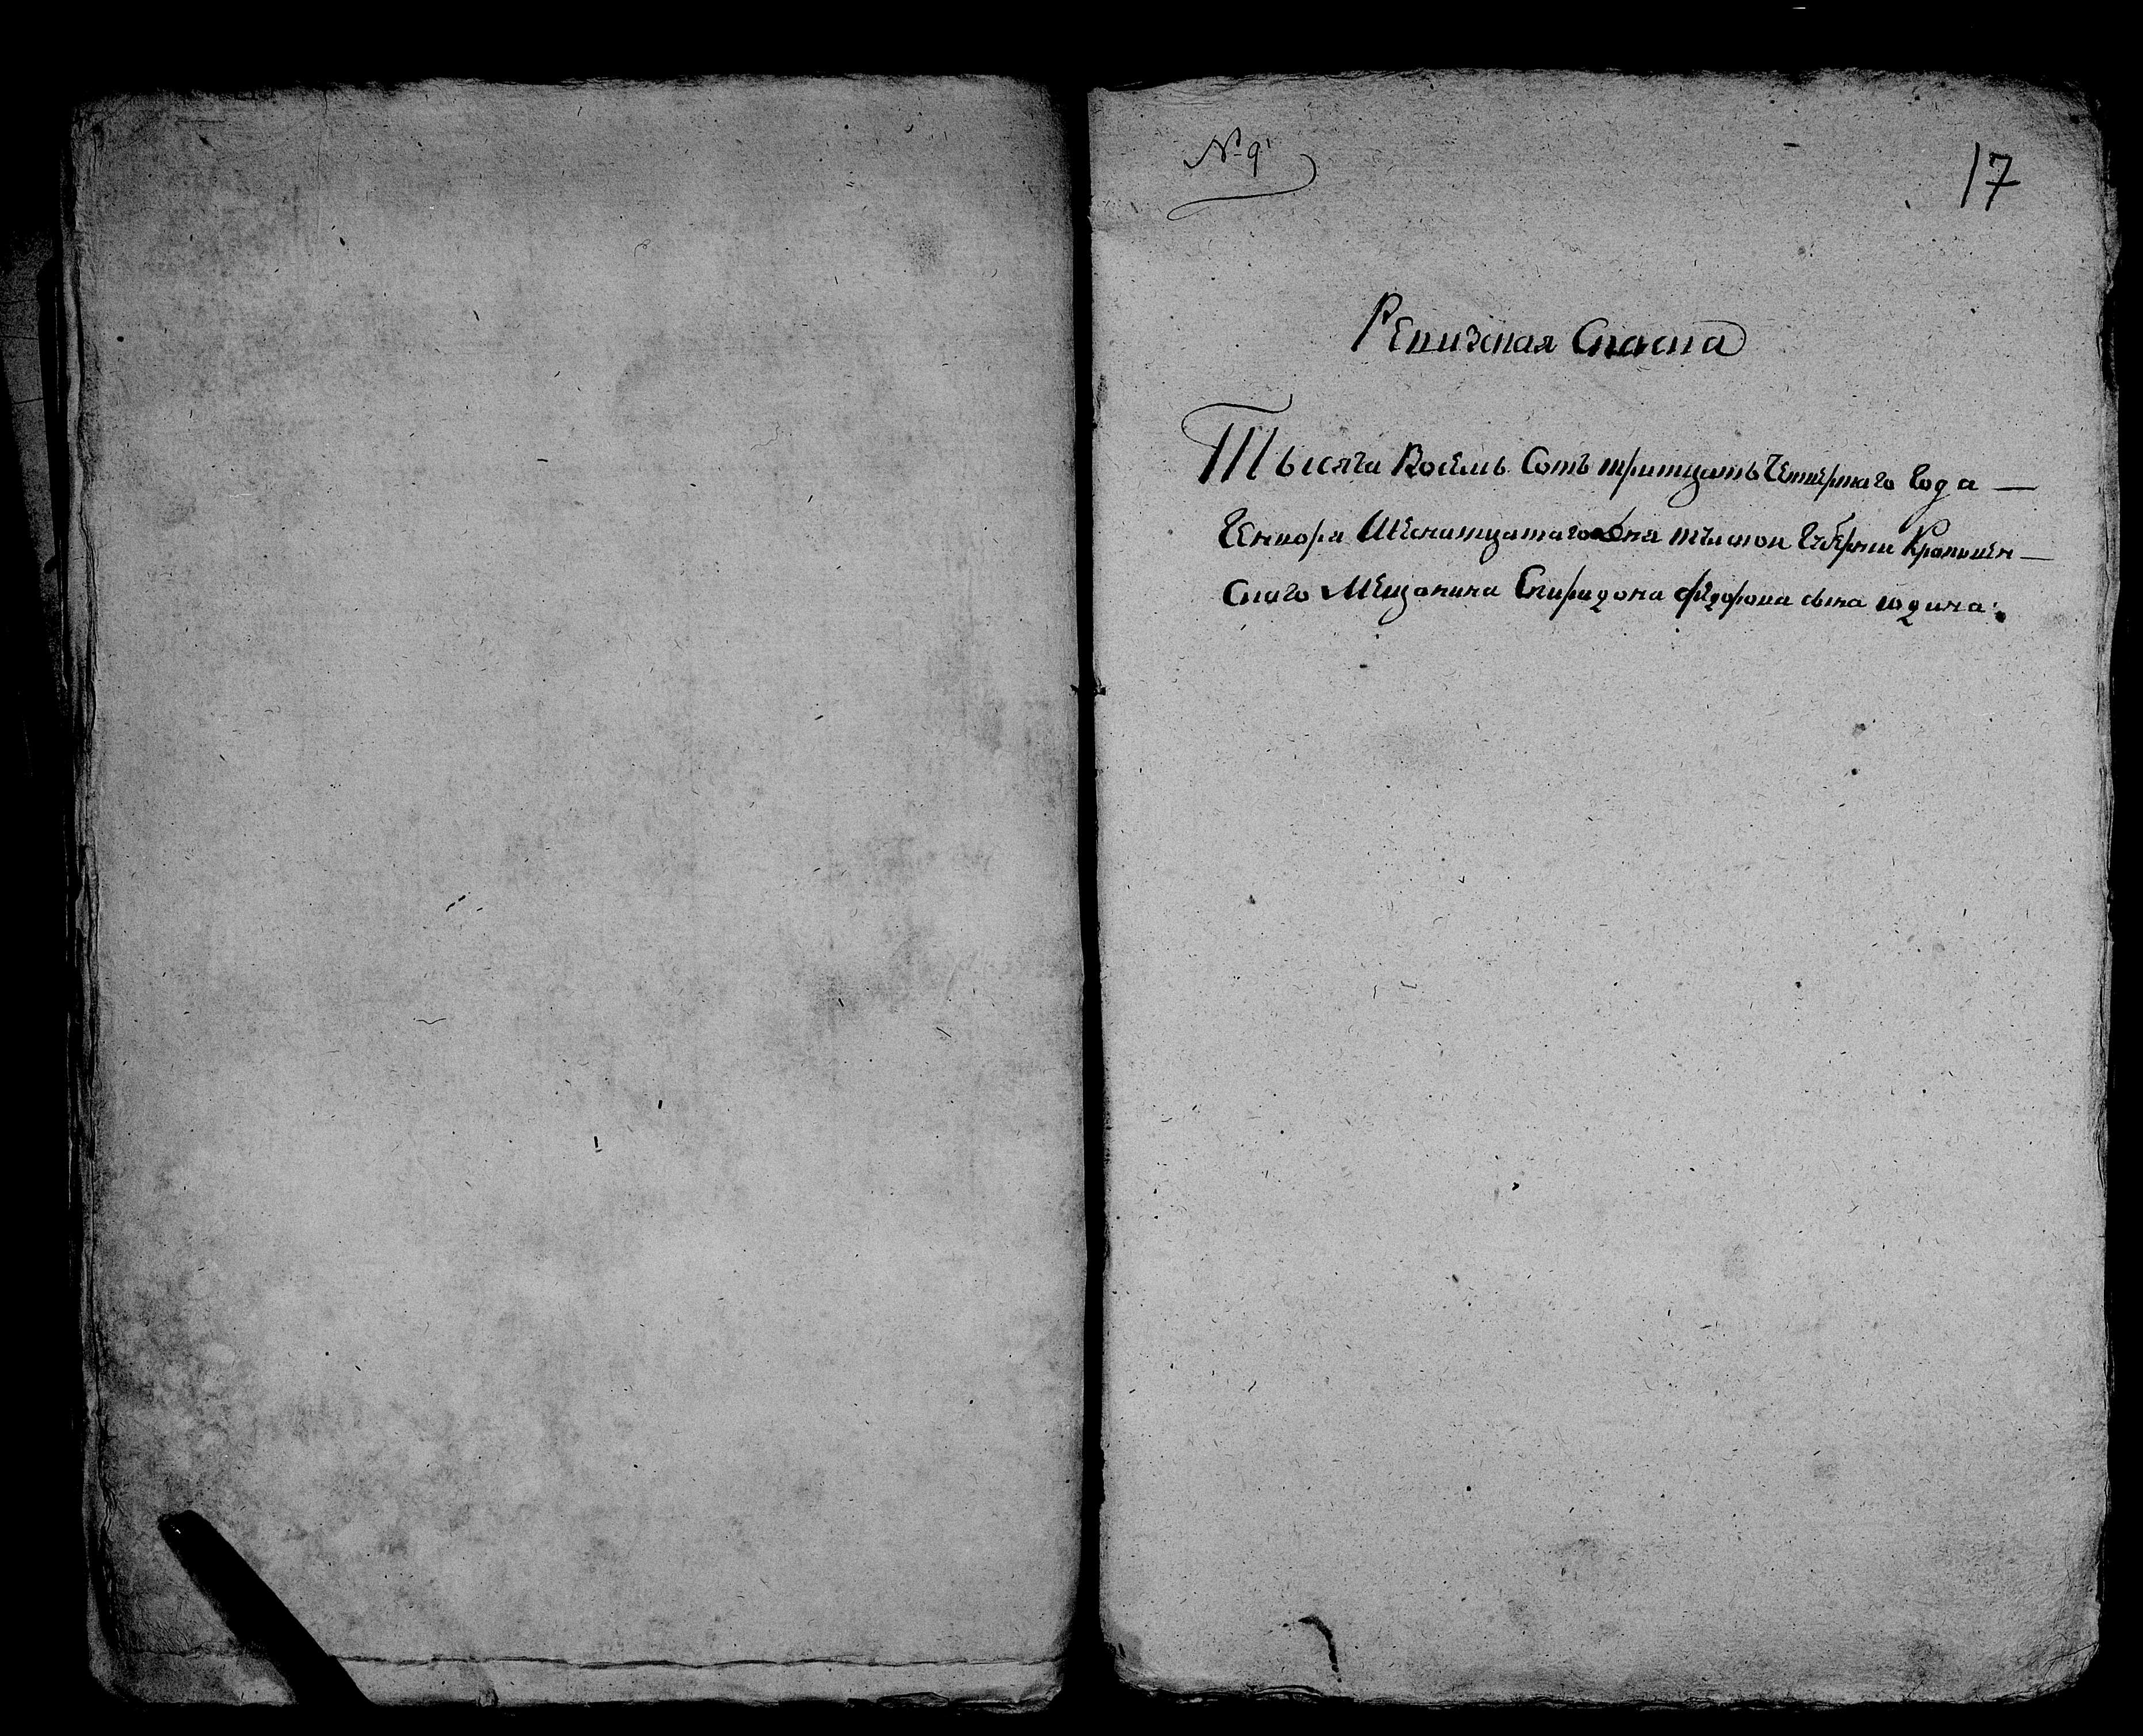 № 9
17
Ревизская Скаска
Тысяча Восемь Сотъ тритцать Четвертаго года —
Генваря дня тульской Губернии Крапивен —
Скаго Мещанина Спиридона Федорова сына юдина.